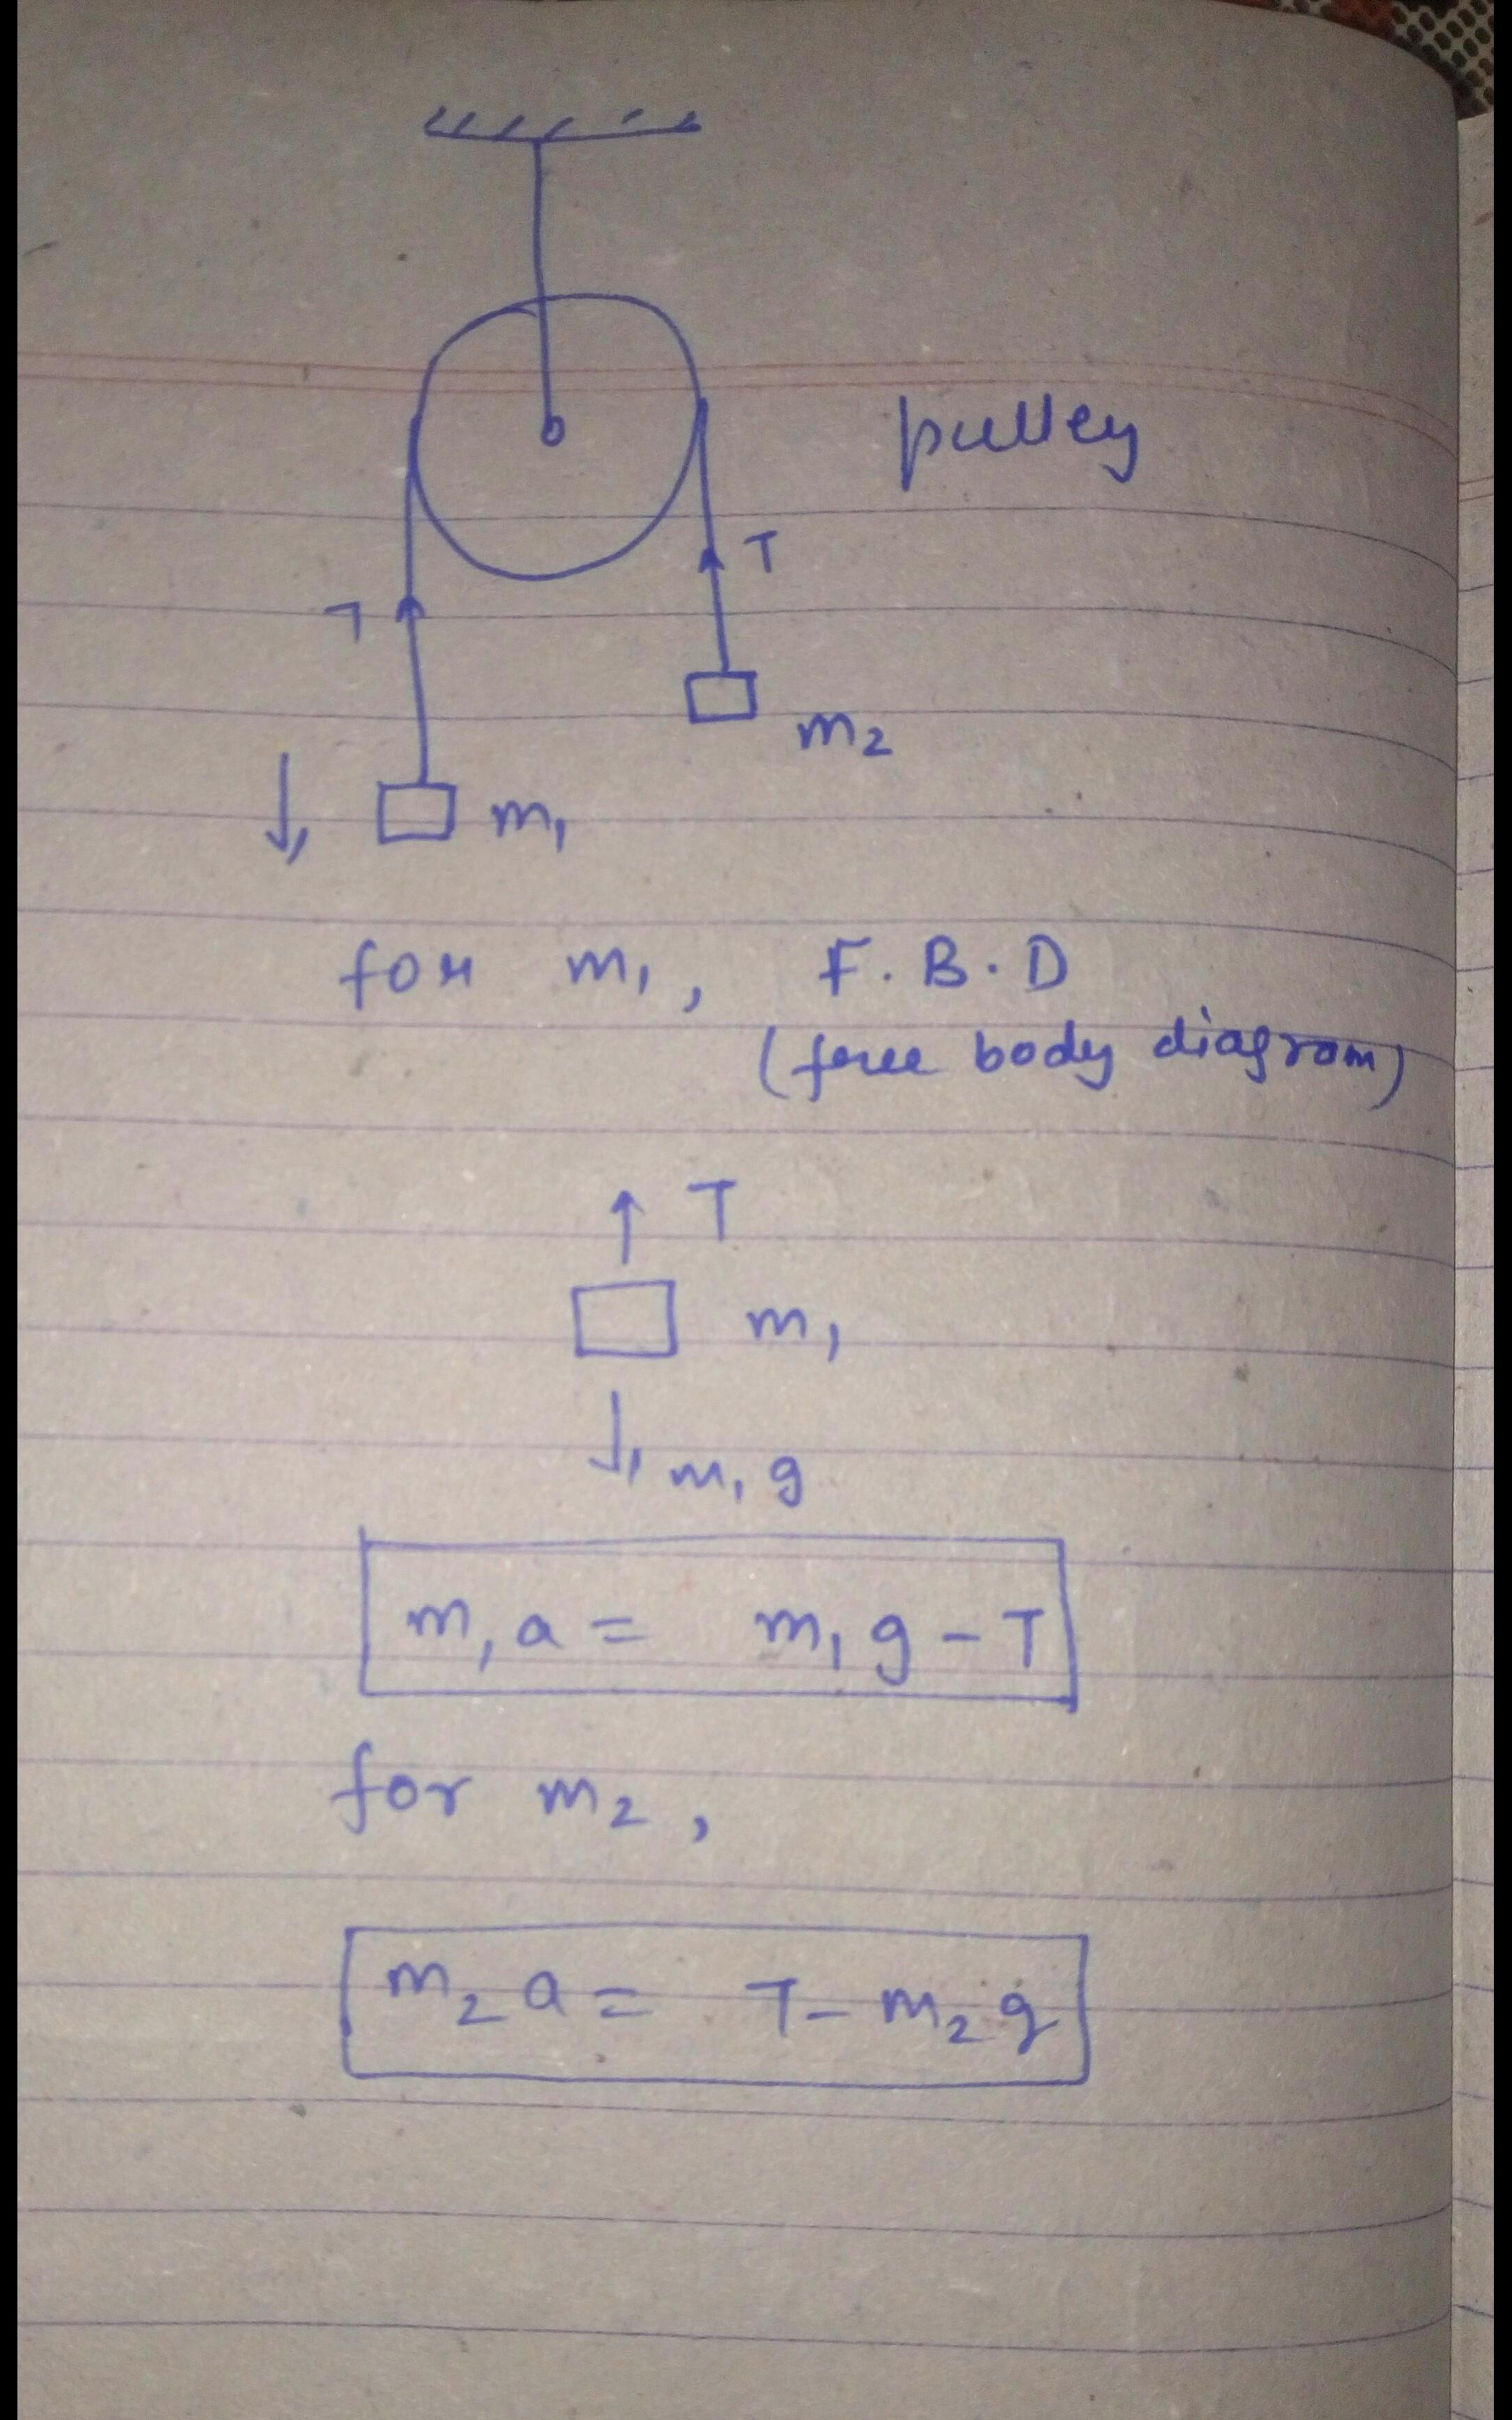 pulley
T
T
m₂
m₁
for m₁, F.B.D
(free body diagram)
T
m₁
m₁g
m₁a = m₁g - T
for m₂,
m₂a = T - m₂g